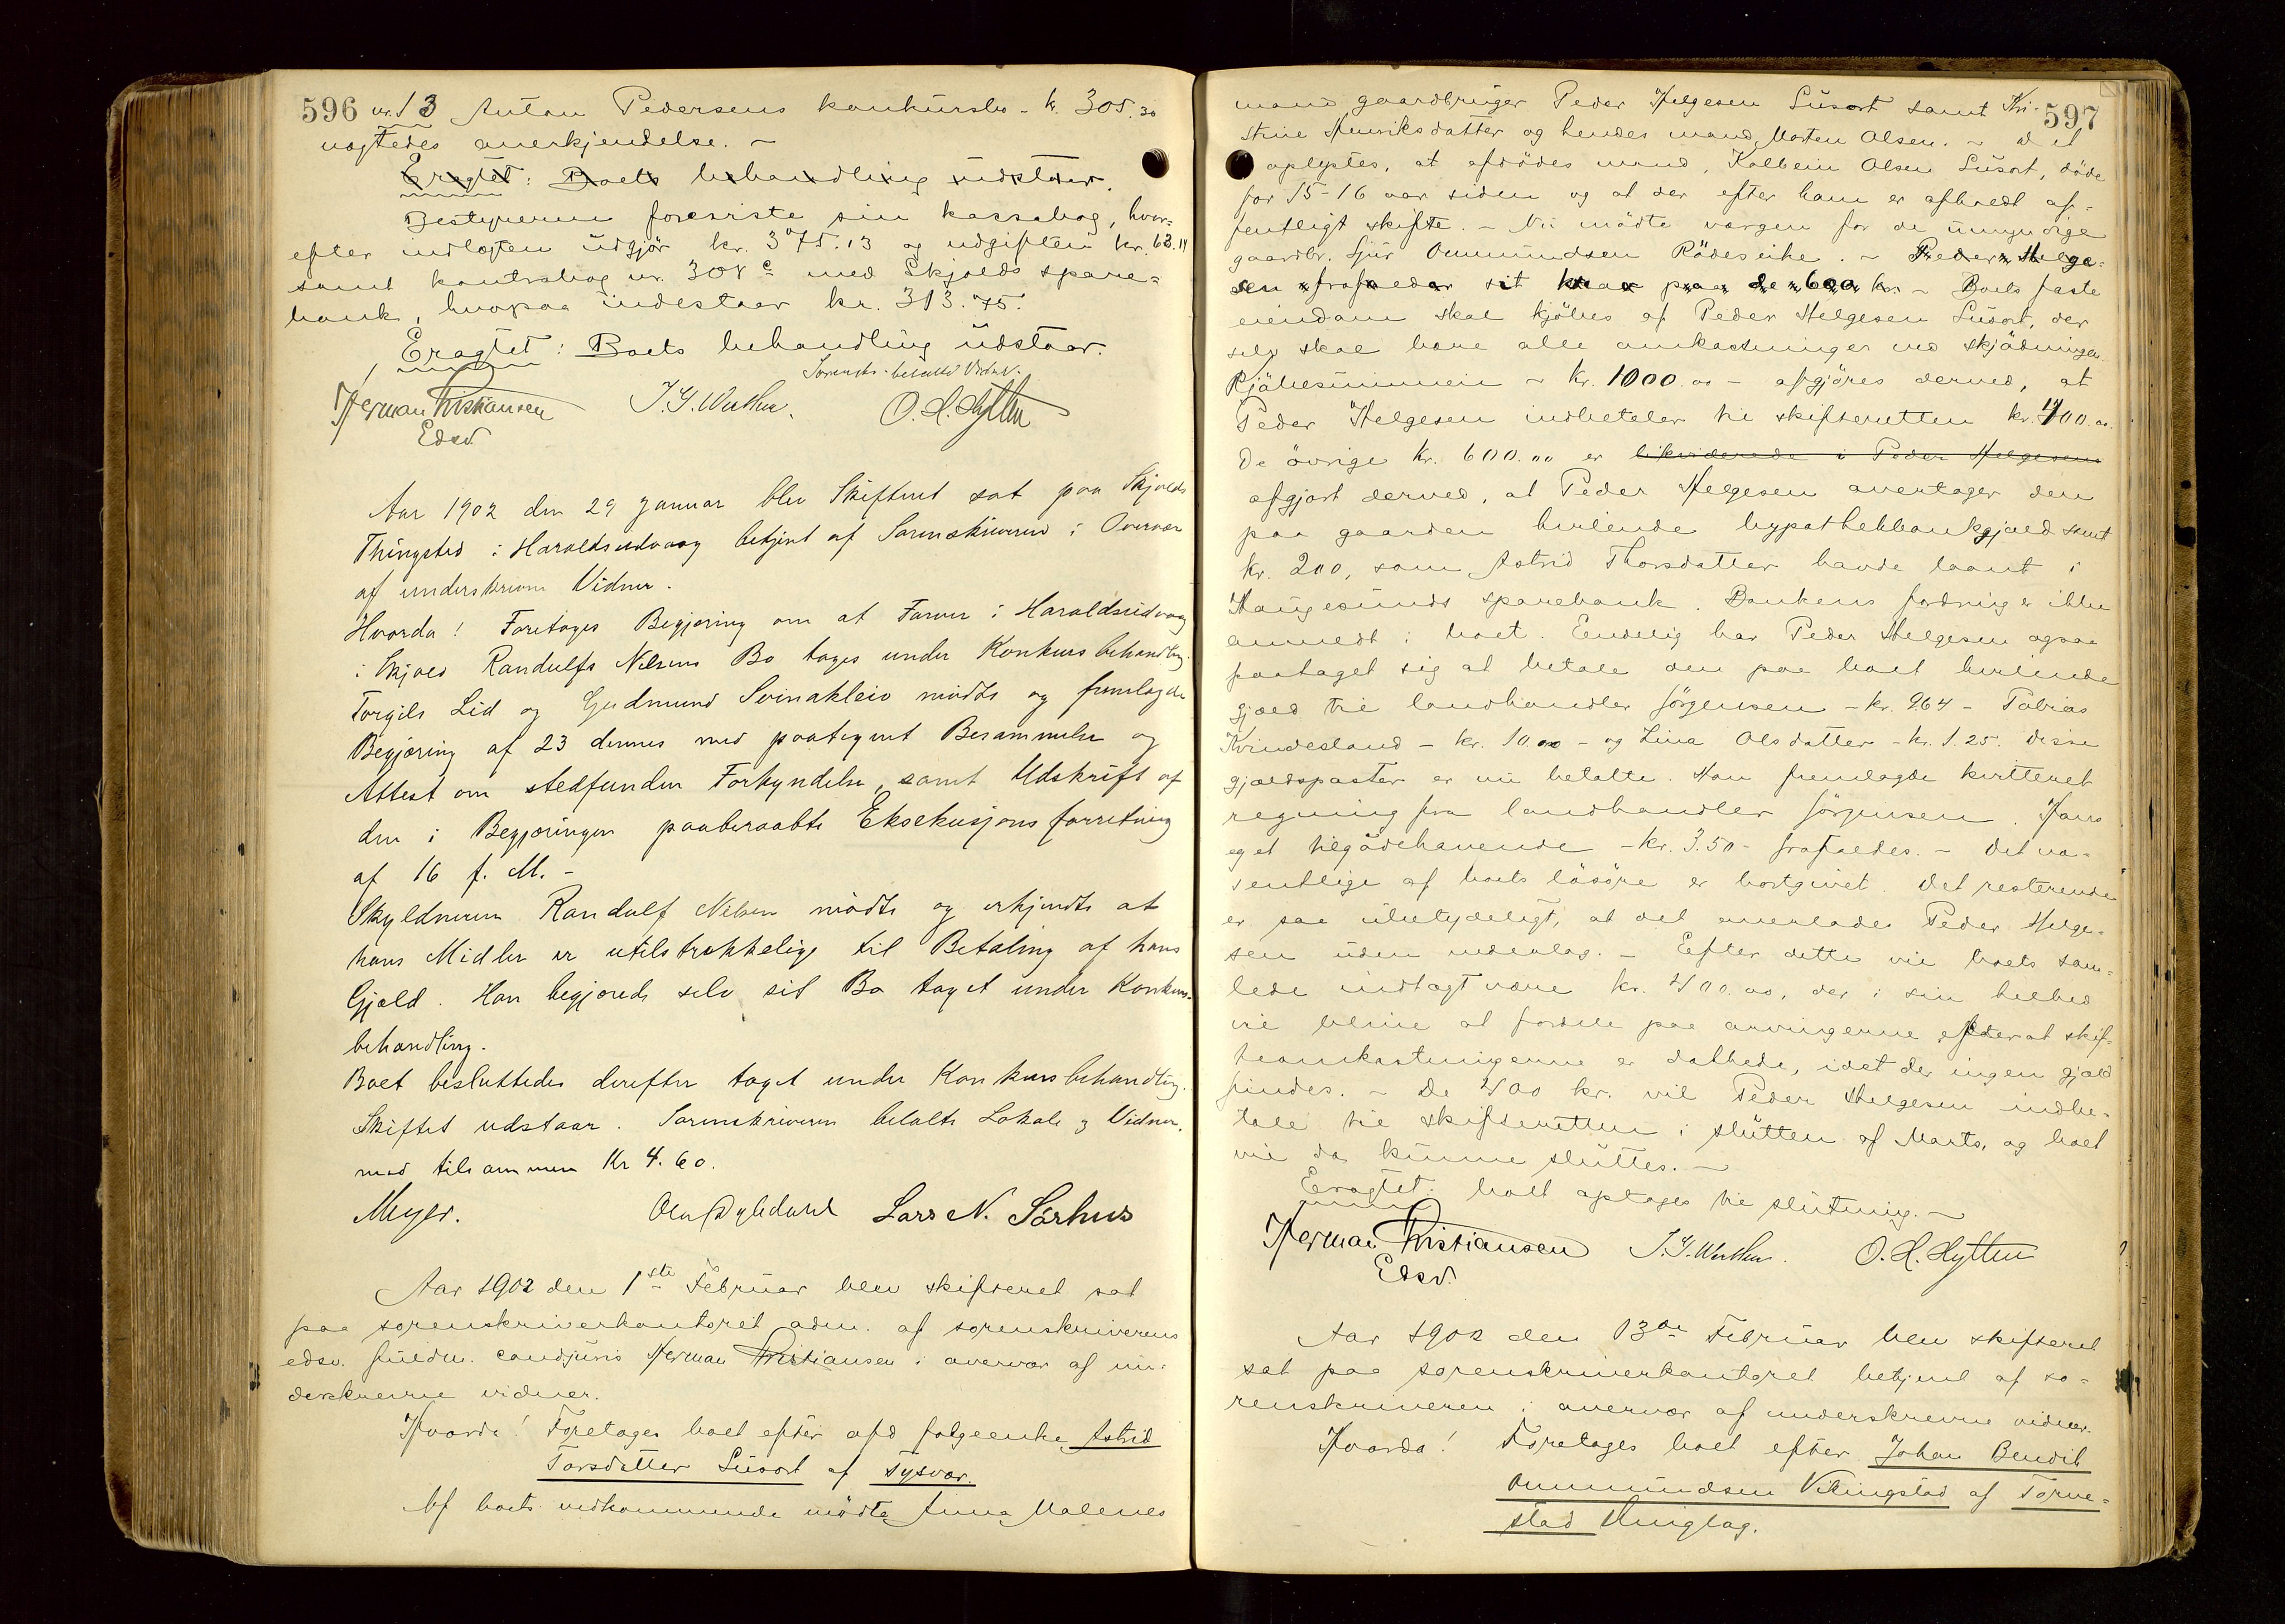 596 nr. 13 Anton Pedersens konkursbo - kr. 305.30
nogtedes anerkjendelse. -
Eragtet: Boets behandling udstaar.
Bestyreren foreviste sin kassabog, hvor-
efter indtægten udgjør kr. 375.13 og udgiften kr. 63.14
samt kontrabog nr. 308 c med Skjolds spare-
bank, hvorpaa indestaar kr. 313.75.
Eragtet: Boets behandling udstaar.
Sorenskr. betalte Vidner.
Herman Kristiansen J.G. Wathne. O.H. Hytten
Edsv.
Aar 1902 den 29 Januar blev Skifteret sat paa Skjolds
Thingsted i Haraldseidvaag betjent af Sorenskriveren i Overvær
af underskrevne Vidner.
Hvorda! Foretoges Begjæring om at Farver i Haraldseidvaag
i Skjold Randulf Nilsens Bo tages under Konkursbehandling.
Torgils Lid og Gudmund Svinakleiv mødte og fremlagde
Begjæring af 23 dennes med paategnet Berammelse og
Attest om stedfunden Forkyndelse, samt Udskrift af
den i Begjæringen paaberaabte Eksekusjonsforretning
af 16 f. M. -
Skyldneren Randulf Nilsen mødte og erkjendte at
hans Midler er utilstrækkelige til Betaling af hans
Gjæld. Han begjærede selv sit Bo taget under Konkurs-
behandling.
Boet besluttedes derefter taget under Konkursbehandling.
Skiftet udstaar. Sorenskriveren betalte Lokale og Vidner.
med tilsammen Kr 4.60.
Meyer. Lars N. Sørhus
Aar 1902 den 1ste Februar blev skifteret sat
paa sorenskriverkontoret adm. af sorenskriverens
edsv. fuldm. cand. juris Herman Kristiansen i overvær af un-
derskrevne vidner.
Hvorda! Foretages boet efter afd. folgeenke Astrid
Torsdatter Susort af Tysvær.
Af boets vedkommende mødte Anna Malenes
597
mand gaardbruger Peder Helgesen Susort samt Kri-
stine Henriksdatter og hendes mand Morten Olsen. - Det
oplystes, at afdødes mand, Kolbein Olsen Susort, døde
for 15-16 aar siden og at der efter ham er afholdt of-
fentligt skifte. - Nu mødte værgen for de umyndige
gaardbr. Sjur Ommundsen Rødseike. - Peder Helge-
sen frafalder sit krav paa de 600 kr. - Boets faste
eiendom skal kjøbes af Peder Helgesen Susort, der
selv skal bære alle omkostninger ved skjødningen.
Kjøbesummen - kr. 1000.00 - afgjøres derved, at
Peder Helgesen indbetaler til skifteretten kr. 400.00.
De øvrige kr. 600.00 er likviderede i Peder Helgesens
afgjort derved, at Peder Helgesen overtager den
paa gaarden hvilende hypothekbankgjæld samt
kr. 200, som Astrid Thorsdatter havde laant i
Haugesunds sparebank. Bankens fordring er ikke
anmeldt i boet. Endelig har Peder Helgesen ogsaa
paataget sig at betale den paa boet hvilende
gjæld til landhandler Jørgensen - kr. 9.64 - Tobias
Kvindesland - kr. 10.00 - og Lina Olsdatter - kr. 1.25. Disse
gjældsposter er nu betalte. Han fremlagde kvitteret
regning fra landhandler Jørgensen. Hans
eget tilgodehavende - kr. 3.50 - frafaldes. - Det væ-
sentlige af boets løsøre er bortgivet. Det resterende
er saa ubetydeligt, at det overlades Peder Helge-
sen uden vederlag. - Efter dette vil boets sam-
lede indtægt være kr. 400.00, der i sin helhed
vil blive at fordele paa arvingerne efterat skif-
teomkostningerne er dækkede, idet der ingen gjæld
findes. - De 400 kr. vil Peder Helgesen indbe-
tale til skifteretten i slutten af Marts, og boet
vil da kunne sluttes. -
Eragtet: boet optages til slutning. -
Herman Kristiansen J.G. Wathne. O.H. Hytten
Edsv.
Aar 1902 den 13de Februar blev skifteret
sat paa sorenskriverkontoret betjent af so-
renskriveren i overvær af underskrevne vidner.
Hvorda! Foretages boet efter Johan Bendik
Ommundsen Vikingstad af Torve-
stad thinglag.